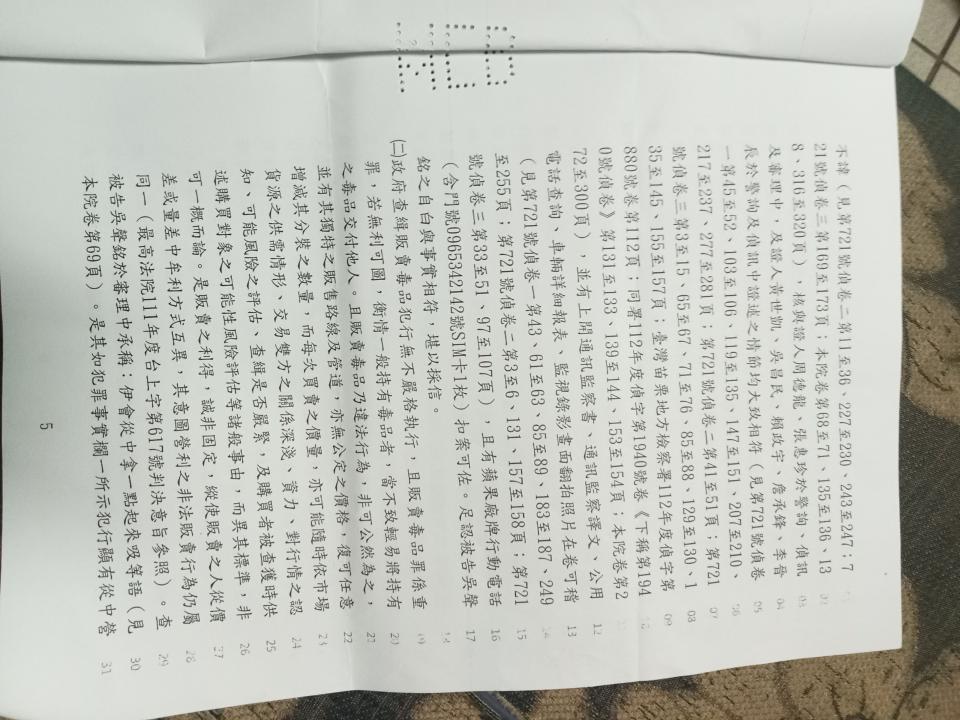 不諱（見第721號偵卷二第11至36、227至230、243至247；7
21號偵卷三第169至173頁；本院卷第68至71、135至136、13
8、316至320頁），核與證人周德龍、張惠珍於警詢、偵訊
及審理中，及證人黃世凱、吳昌民、賴政宇、詹承鋒、李晉
辰於警詢及偵訊中證述之情節均大致相符（見第721號偵卷
一第45至52、103至106、119至135、147至151、207至210、
217至237、277至281頁；第721號偵卷二第41至51頁；第721
號偵卷三第3至15、65至67、71至76、85至88、129至130、1
35至145、155至157頁；臺灣苗栗地方檢察署112年度偵字第
880號卷第112頁；同署112年度偵字第1940號卷《下稱第194
0號偵卷》第131至133、139至144、153至154頁；本院卷第2
72至300頁），並有上開通訊監察書、通訊監察譯文、公用
電話查詢、車輛詳細報表、監視錄影畫面翻拍照片在卷可稽
（見第721號偵卷一第43、61至63、85至89、183至187、249
至255頁；第721號偵卷二第3至6、131、157至158頁；第721
號偵卷三第33至51、97至107頁），且有蘋果廠牌行動電話
（含門號0965342142號SIM卡1枚）扣案可佐。足認被告吳聲
銘之自白與事實相符，堪以採信。
㈡政府查緝販賣毒品犯行無不嚴格執行，且販賣毒品罪係重
罪，若無利可圖，衡情一般持有毒品者，當不致輕易將持有
之毒品交付他人。且販賣毒品乃違法行為，非可公然為之，
並有其獨特之販售路線及管道，亦無公定之價格，復可任意
增減其分裝之數量，而每次買賣之價量，亦可能隨時依市場
貨源之供需情形、交易雙方之關係深淺、資力、對行情之認
知、可能風險之評估、查緝是否嚴緊，及購買者被查獲時供
述購買對象之可能性風險評估等諸般事由，而異其標準，非
可一概而論。是販賣之利得，誠非固定，縱使販賣之人從價
差或量差中牟利方式互異，其意圖營利之非法販賣行為仍屬
同一（最高法院111年度台上字第617號判決意旨參照）。查
被告吳聲銘於審理中承稱：伊會從中拿一點起來吸等語（見
本院卷第69頁）。是其如犯罪事實欄一所示犯行顯有從中營
01
02
03
04
05
06
07
08
09
10
11
12
13
14
15
16
17
18
19
20
21
22
23
24
25
26
27
28
29
30
31
5